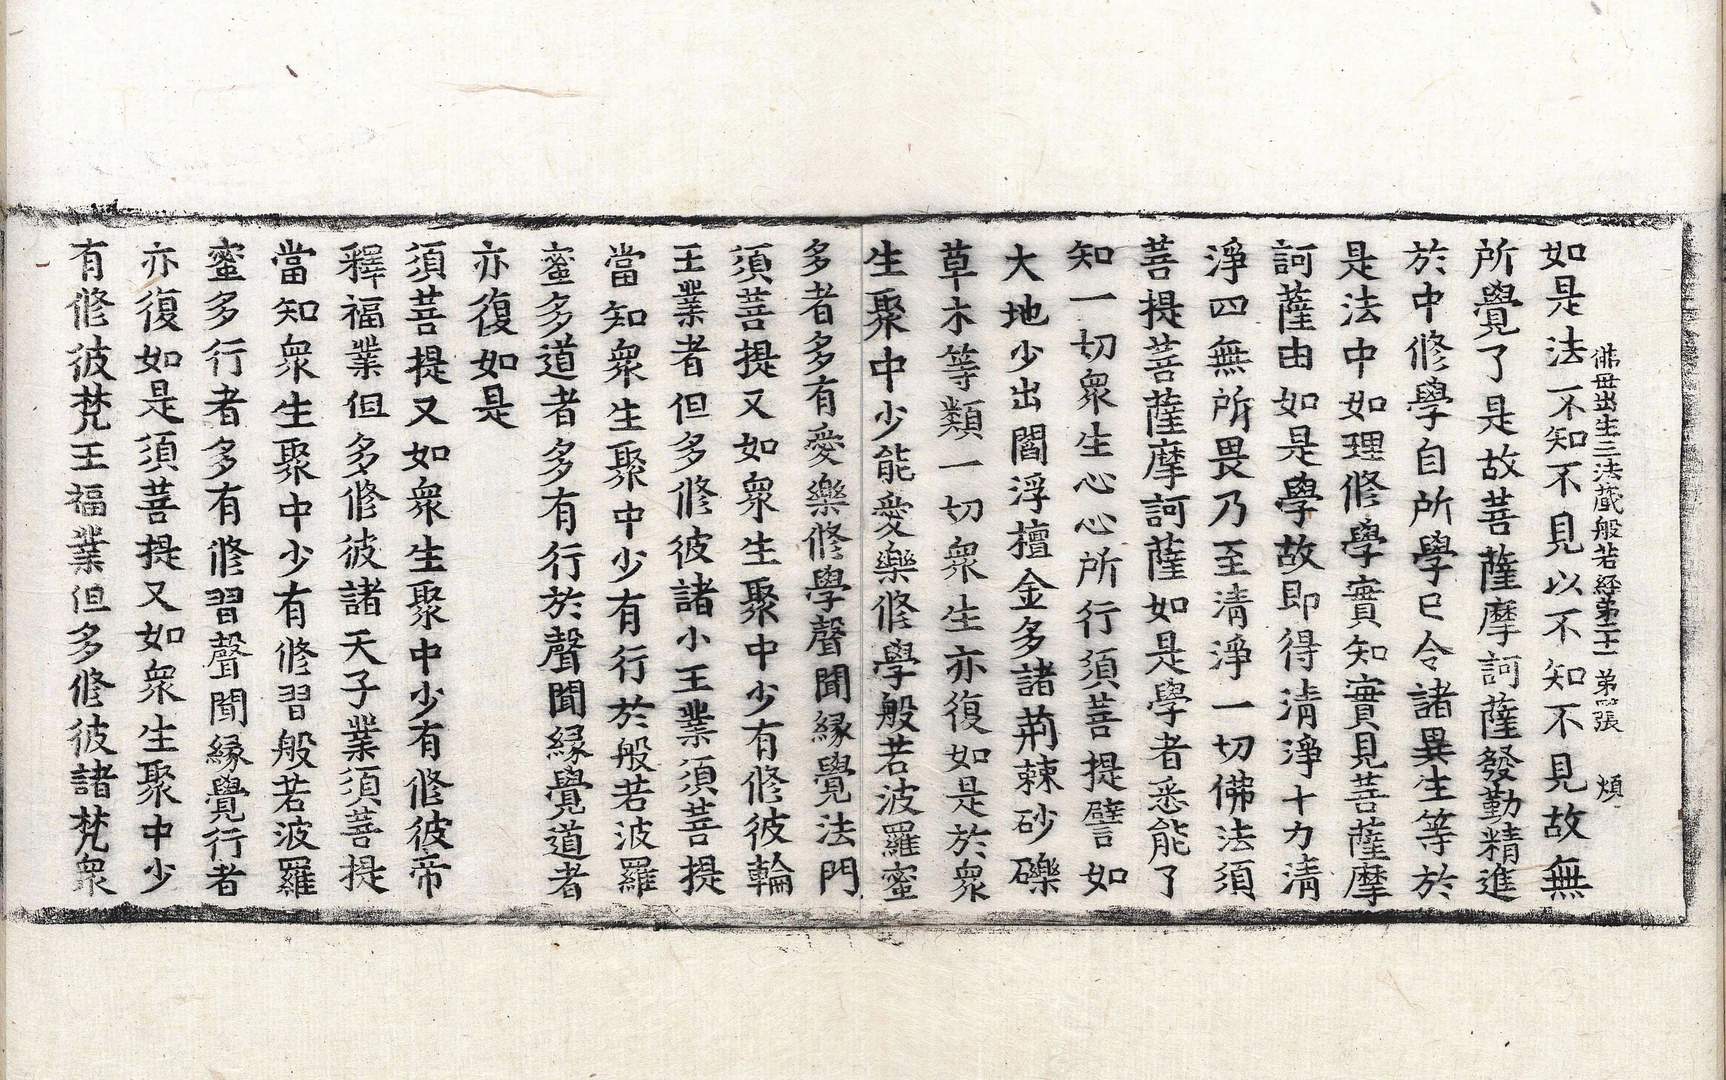 佛母出生三法蔵般若経第二十一 第 張 煩
如是法不知不見以不知不見故無
所覺了是故菩薩摩訶薩發勤精進
於中修學自所學已令諸異生等於
是法中如理修學實知實見菩薩摩
訶薩由如是學故即得清淨十力清
淨四無所畏乃至清淨一切佛法須
菩提菩薩摩訶薩如是學者悉能了
知一切衆生心心所行須菩提譬如
大地少出閻浮檀金多諸荊棘砂礫
草木等類一切衆生亦復如是於衆
生聚中少能愛樂修學般若波羅蜜
多者多有愛樂修學聲聞緣覺法門
須菩提又如衆生聚中少有修彼輪
王業者但多修彼諸小王業須菩提
當知衆生聚中少有行於般若波羅
蜜多道者多有行於聲聞緣覺道者
亦復如是
須菩提又如衆生聚中少有修彼帝
釋福業但多修彼諸天子業須菩提
當知衆生聚中少有修習般若波羅
蜜多行者多有修習聲聞緣覺行者
亦復如是須菩提又如衆生聚中少
有修彼梵王福業但多修彼諸梵衆